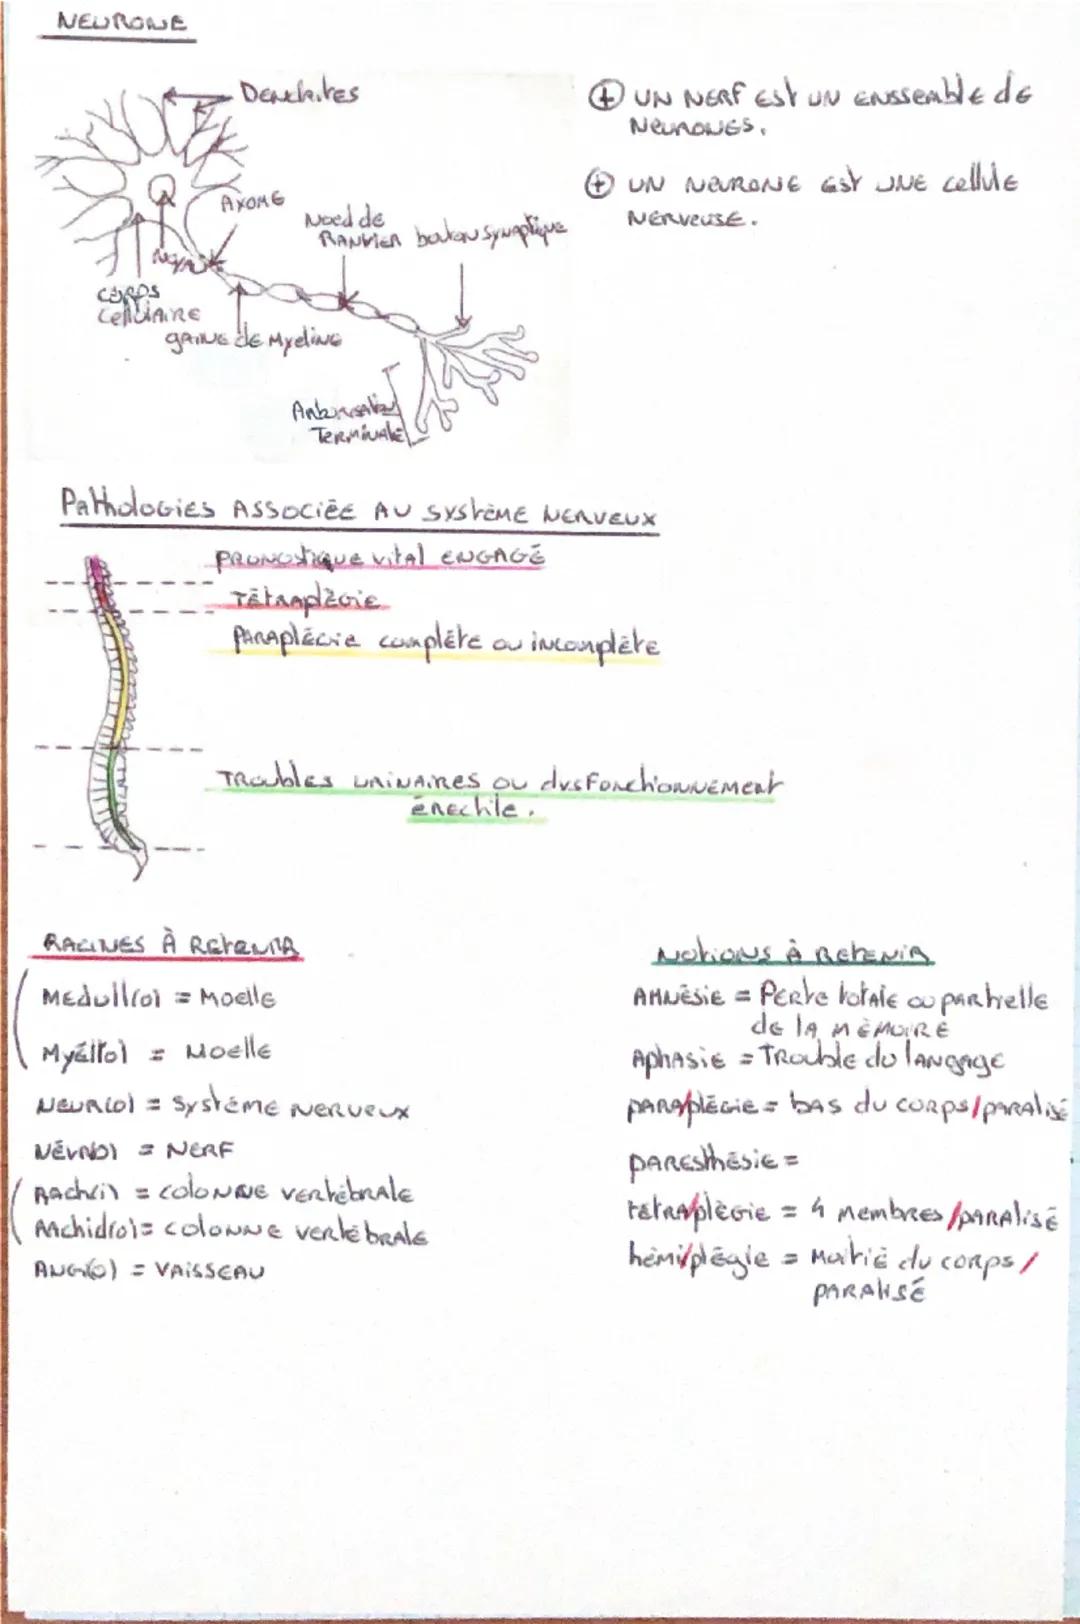 NEURONE
Dendrites
⊕ UN NERF EST UN ENSSEMBLE DE
NEURONES.
⊕ UN NEURONE EST UNE cellule
NERVEUSE.
AXOME
Noed de
RANVIER
bouton synaptique
NOYAU
CORPS
Cellulaire
gAINE de Myeline
Arborisation
TERMINALE
Pathologies ASSOCIÉE AU SYSTÈME NERVEUX
PRONOSTIQUE vital ENGAGÉ
TÉTRAplégie
PARAplégie complète ou incomplète
TRoubles URINAIRES ou dysfonctionnement
érectile.
RACINES À RETENIR
MEdull(o) = Moelle
Myél(o) = Moelle
NEUR(o) = Système NERVEUX
NÉVR(o) = NERF
RAch(i) = colonne vertébrale
RAchid(o) = colonne vertébrale
ANGI(o) = VAISSEAU
NOTIONS À RETENIR
AMNÉSIE = PERte totale ou partielle
de la MÉMOIRE
Aphasie = TRouble du langage
PARA/plégie = bas du corps/paralisé
PARESThésie =
tétra/plégie = 4 membres/paralisé
hémi/plégie = Moitié du corps/
PARALISÉ